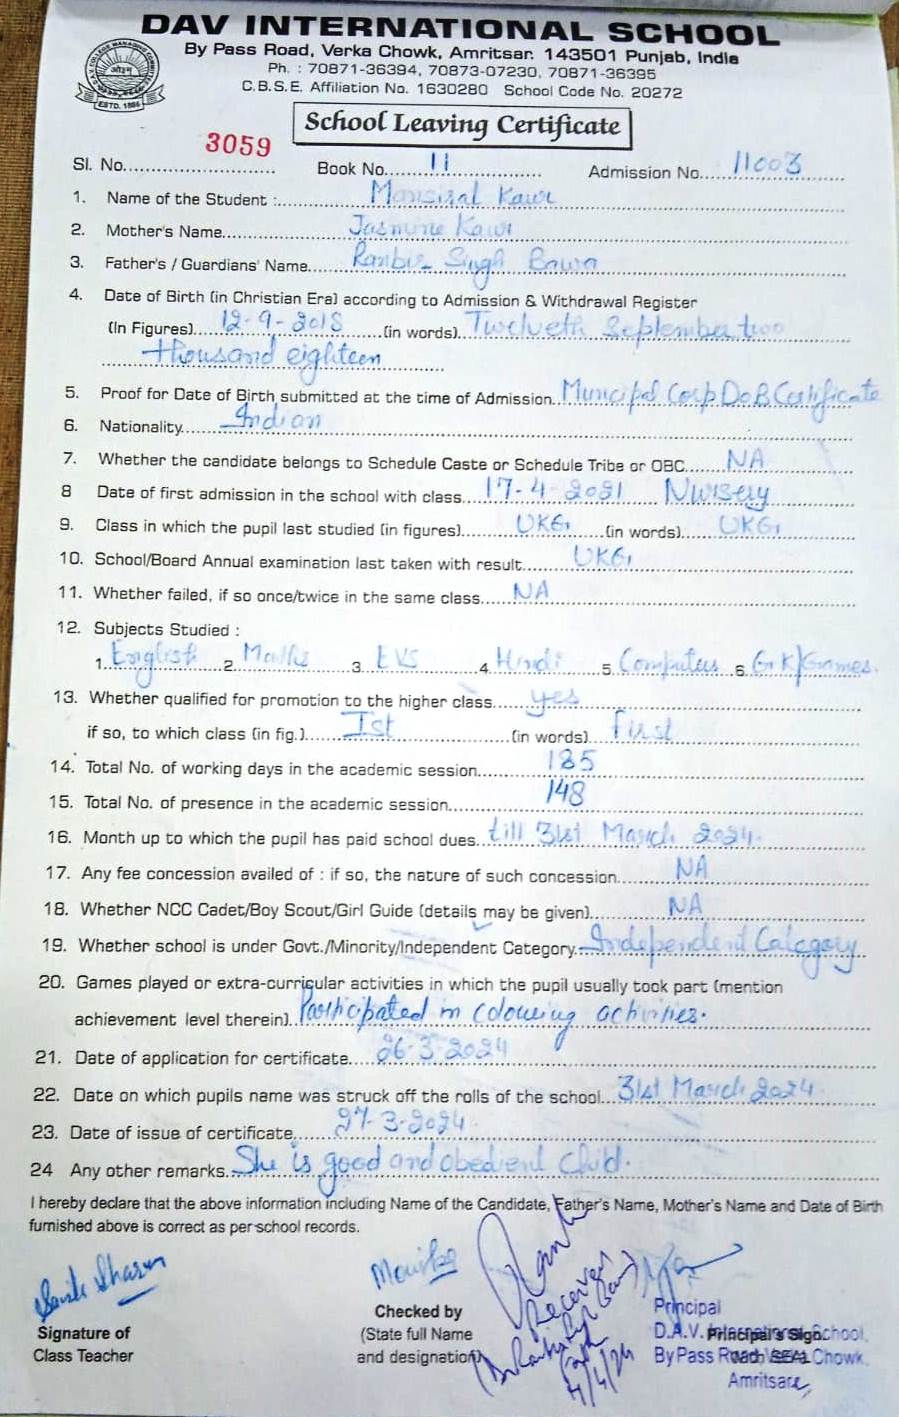 DAV INTERNATIONAL SCHOOL
By Pass Road, Verka Chowk, Amritsar. 143501 Punjab, India
Ph. : 70871-36394, 70873-07230, 70871-36395
C.B.S.E. Affiliation No. 1630280 School Code No. 20272
ESTD. 1886
School Leaving Certificate
Sl. No. 3059 Book No. 11 Admission No. 11003
1. Name of the Student : Kaur
2. Mother's Name Jasmine Kaur
3. Father's / Guardians' Name Ranbir Singh Bawa
4. Date of Birth (in Christian Era) according to Admission & Withdrawal Register
(In Figures) 12-9-2018 (in words) Twelveth September two
thousand eighteen
5. Proof for Date of Birth submitted at the time of Admission Municipal Corp DoB Certificate
6. Nationality Indian
7. Whether the candidate belongs to Schedule Caste or Schedule Tribe or OBC NA
8 Date of first admission in the school with class 17-4-2021 Nursery
9. Class in which the pupil last studied (in figures) UKG (in words) UKG
10. School/Board Annual examination last taken with result UKG
11. Whether failed, if so once/twice in the same class NA
12. Subjects Studied :
1. English 2. Maths 3. EVS 4. Hindi 5. Computer 6. G.K/Games.
13. Whether qualified for promotion to the higher class yes
if so, to which class (in fig.) Ist (in words) First
14. Total No. of working days in the academic session 185
15. Total No. of presence in the academic session 148
16. Month up to which the pupil has paid school dues till 31st March 2024.
17. Any fee concession availed of : if so, the nature of such concession NA
18. Whether NCC Cadet/Boy Scout/Girl Guide (details may be given) NA
19. Whether school is under Govt./Minority/Independent Category Independent Category
20. Games played or extra-curricular activities in which the pupil usually took part (mention
achievement level therein) Participated in colouring activities.
21. Date of application for certificate 26-3-2024
22. Date on which pupils name was struck off the rolls of the school 31st March 2024.
23. Date of issue of certificate 27-3-2024.
24 Any other remarks She is good and obedient child.
I hereby declare that the above information including Name of the Candidate, Father's Name, Mother's Name and Date of Birth
furnished above is correct as per school records.
Received
4/4/24
Signature of
Class Teacher
Checked by
(State full Name
and designation)
Principal
D.A.V. International School,
By Pass Road Verka Chowk,
Amritsar.
Principal's Sign.
with SEAL